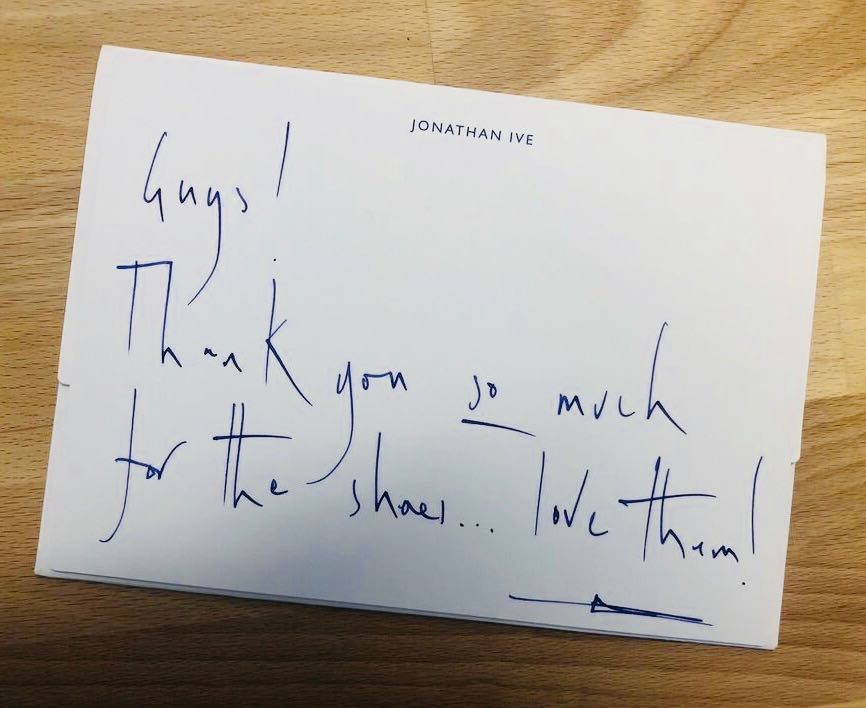 JONATHAN IVE
Guys!
Thank you so much
for the shoes... love them!